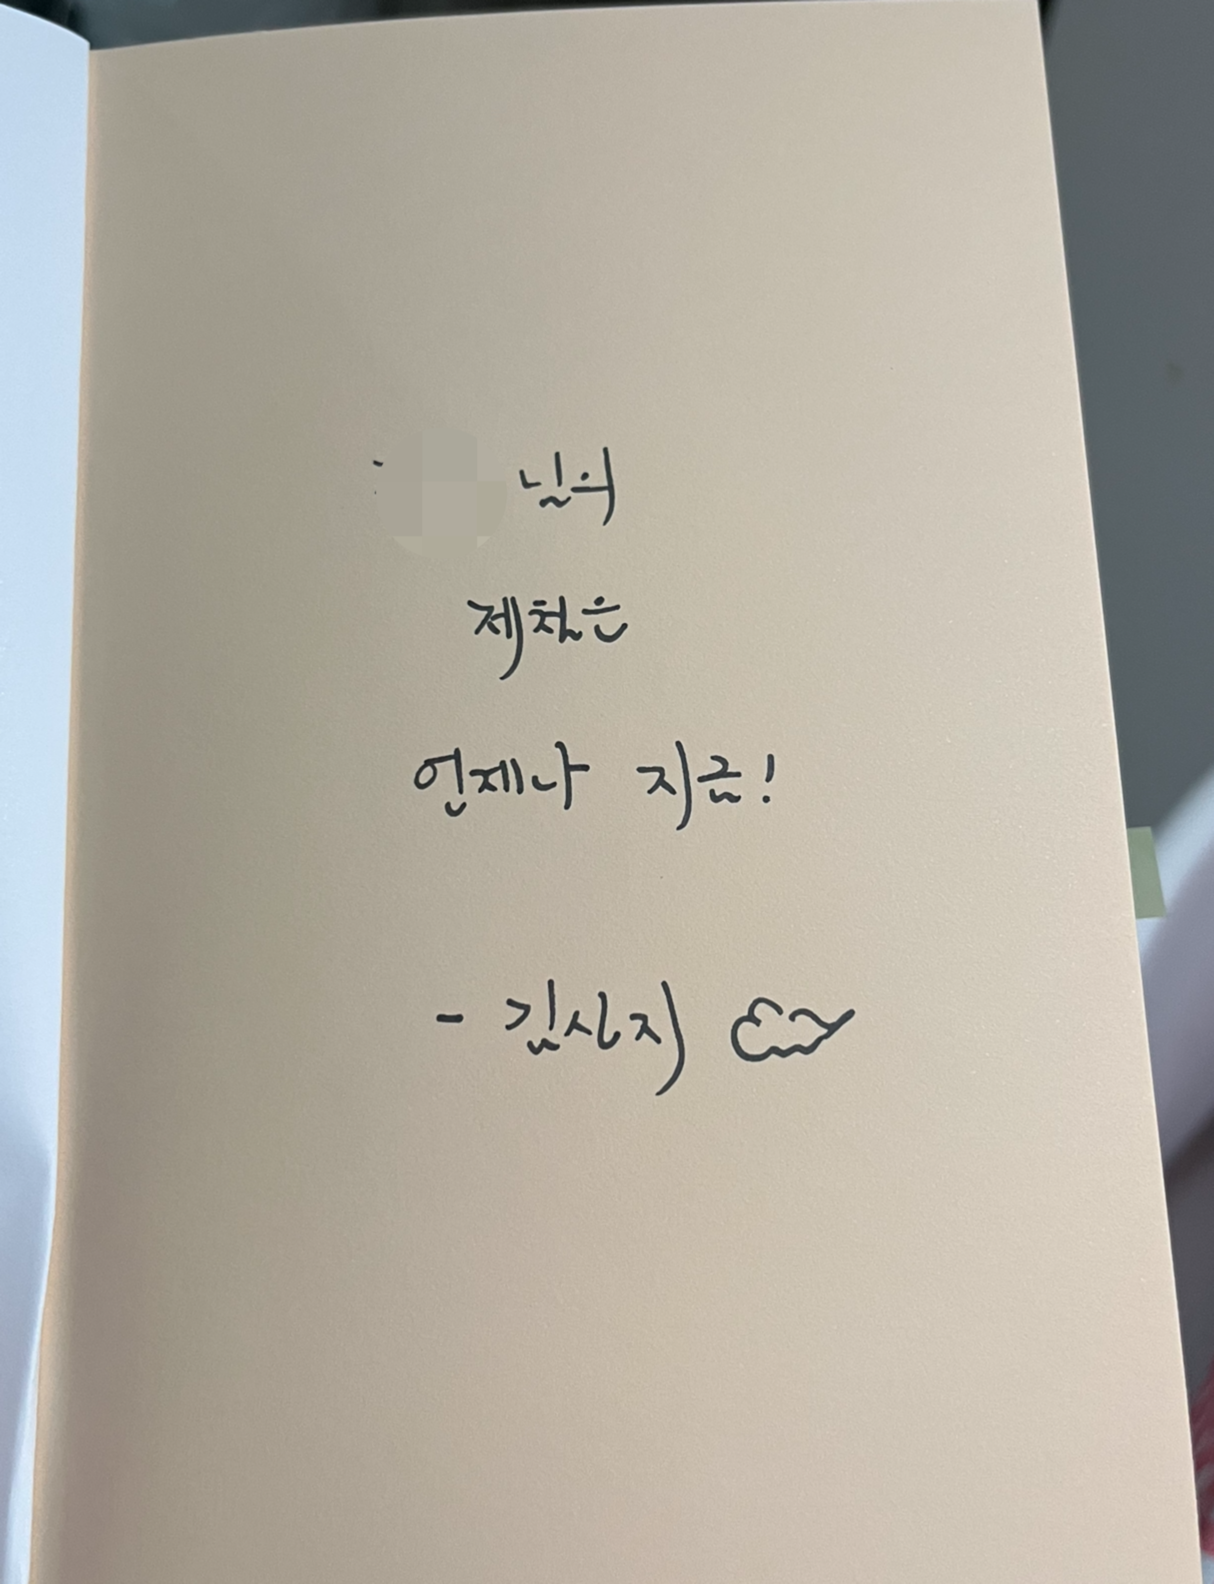 님의
제철은
언제나 지금!
- 김신지